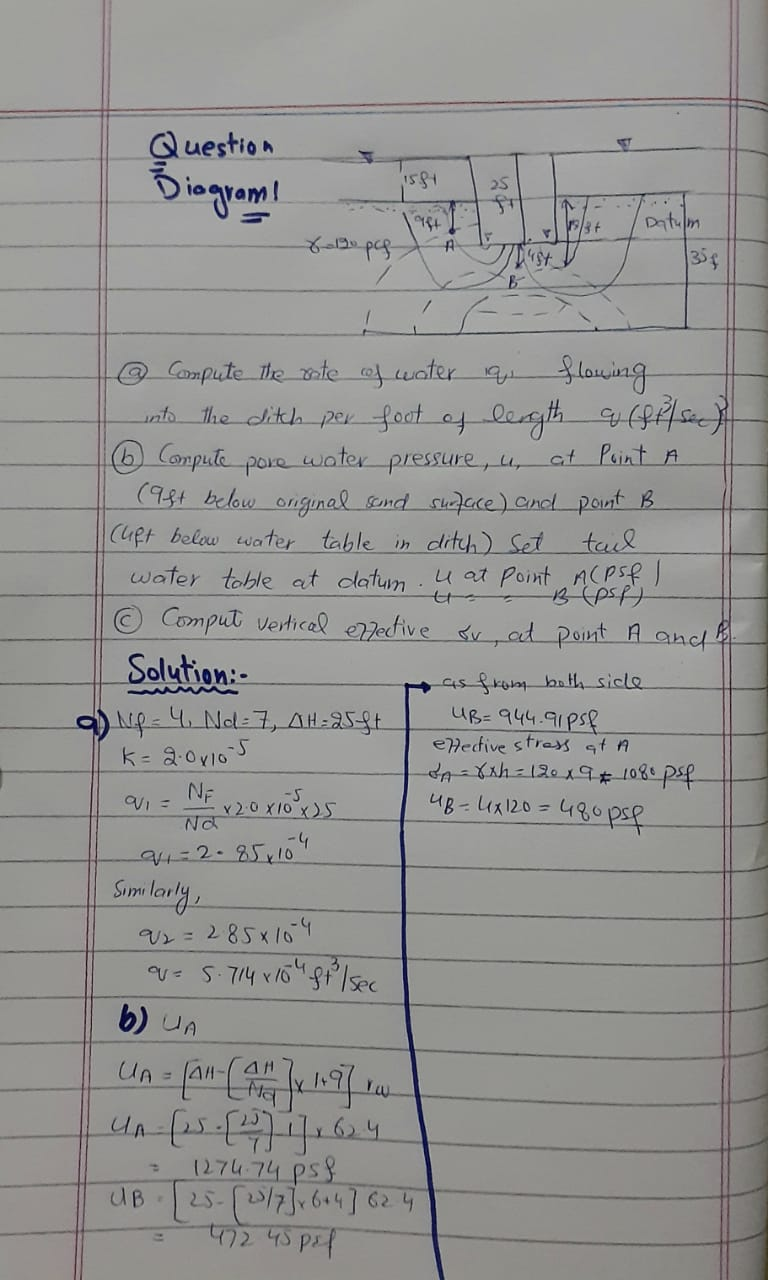 Question
Diagram!
15ft
25
ft
9ft
A
15ft
Datum
γ=120 pcf
4ft
B
35f
(a) Compute the rate of water q, flowing
into the ditch per foot of length q (ft³/sec)
(b) Compute pore water pressure, u, at Point A
(9ft below original sand surface) and point B
(4ft below water table in ditch) Set tail
water table at datum. u at Point A(psf)
u = = B (psf)
(c) Comput vertical effective σv, at point A and B.
Solution:-
a) Nf = 4, Nd = 7, ΔH = 25ft
K = 2.0x10⁻⁵
q₁ = NF/Nd x2.0 x10⁻⁵x25
q₁ = 2.85x10⁻⁴
Similarly,
q₂ = 285x10⁻⁴
q = 5.714 x10⁻⁴ ft³/sec
b) UA
UA = [ΔH-[ΔH/Nd]x 1+9] rw
UA = [25-[25/7]-1] x 62.4
= 1274.74 psf
UB = [25-[25/7]x6+4] 62.4
= 472 45 psf
as from both side
UB= 944.91psf
effective stress at A
σA = γxh = 120x9 = 1080 psf
UB = 4x120 = 480psf